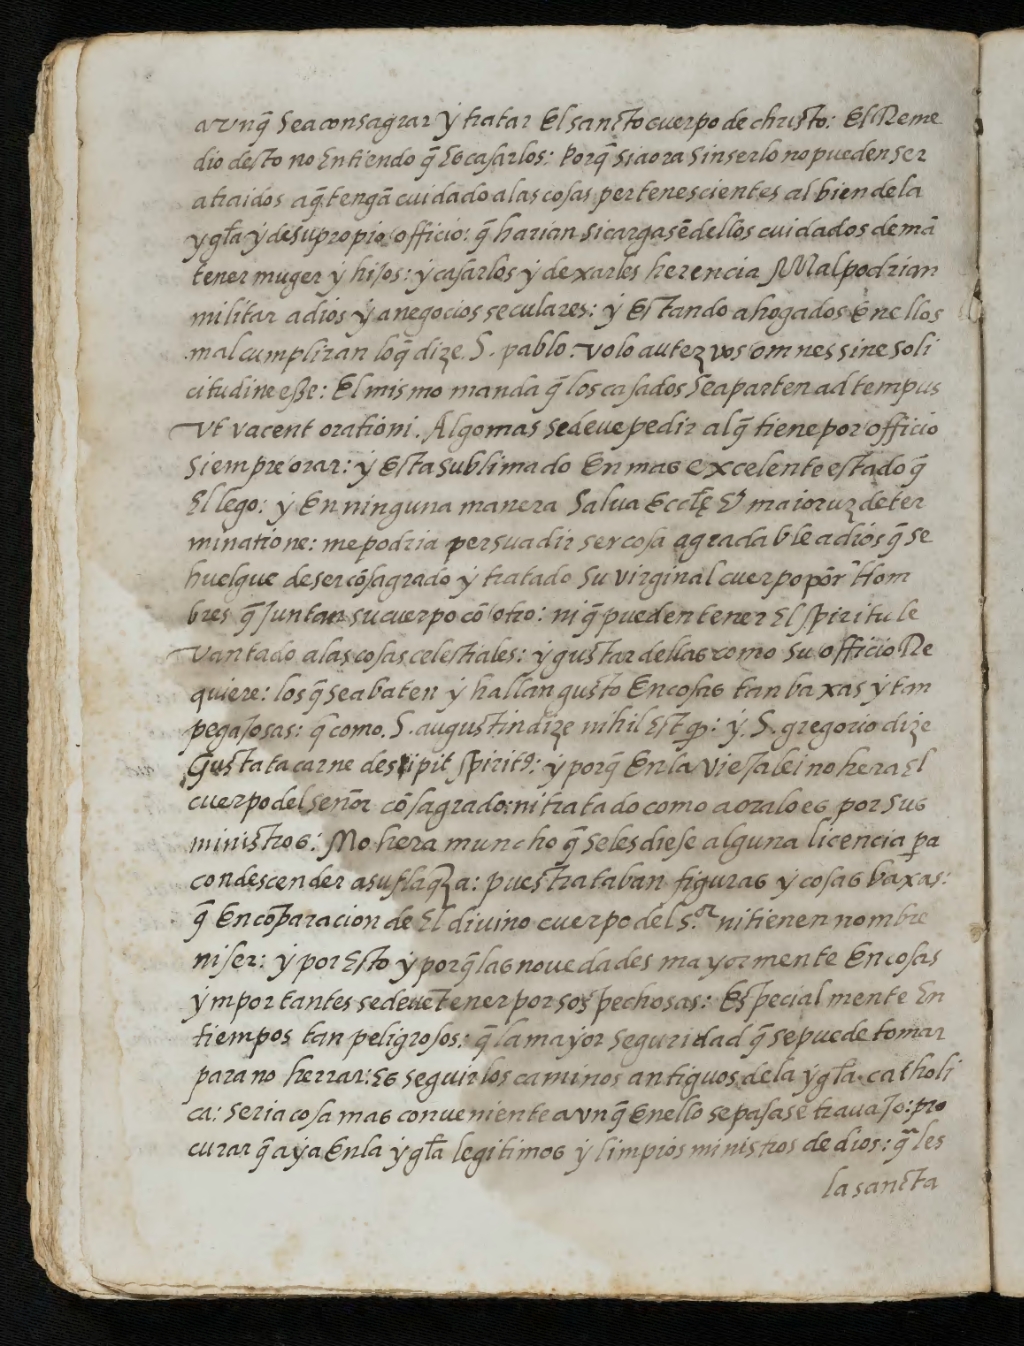 avnq̃ sea consagrar ẏ tratar El sancto cuerpo de christo: El Reme
dio desto no Entiendo q̃ Es casarlos: Porq̃ si aora sin serlo no pueden ser
atraidos a q̃ tengã cuidado a las cosas pertenescientes al bien de la
ygl̃a ẏ de su propio officio: q̃ harian si cargasẽ dellos cuidados de mã
tener muger ẏ hijos: ẏ casarlos ẏ dexarles herencia Mal podrian
militar a dios ẏ a negocios seculares: ẏ Estando ahogados En ellos
mal cumpliran loq̃ dize. S. pablo: volo autez vos omnes sine soli
citudine esse: El mismo manda q̃ los casados se aparten ad tempus
vt vacent orationi. Algo mas se deue pedir al q̃ tiene por officio
siempre orar: ẏ Esta sublimado En mas excelente estado q̃
El lego: ẏ En ninguna manera Salua Eccl̃ę Et maioruz deter
minatione: me podria persuadir ser cosa agradable a dios q̃ se
huelgue de ser cõsagrado ẏ tratado su virginal cuerpo por Hom
bres q̃ juntan su cuerpo cõ otro: ni q̃ pueden tener El spiritu le
vantado a las cosas celestiales: ẏ gustar dellas como su officio Re
quiere: los q̃ se abaten ẏ hallan gusto En cosas tan baxas ẏ tan
pegajosas: q̃ como. S. augustin dize nihil Est qȝ: ẏ. S. gregorio dize
Gustata carne desipit spirit9: ẏ porq̃ En la vieja lei no hera El
cuerpo del señor cõsagrado: ni tratado como aora lo es por sus
ministros: No hera muncho q̃ se les diese alguna licencia p̱a
condescender a su flaq̃za: pues trataban figuras ẏ cosas baxas:
q̃ En cõparacion de El diuino cuerpo del S.ᵒʳ ni tienen nombre
ni ser: ẏ por Esto ẏ porq̃ las nouedades mayormente En cosas
ẏmportantes se deue tener por sospechosas: Especialmente En
tiempos tan peligrosos: q̃ la mayor seguridad q̃ se puede tomar
para no herrar: Es seguir los caminos antiguos de la ẏgl̃a catholi
ca: seria cosa mas conueniente avnq̃ En ello se pasasẽ trauajo: pro
curar q̃ aẏa En la ẏgl̃a legitimos ẏ limpios ministros de dios: q̃ les
la sancta